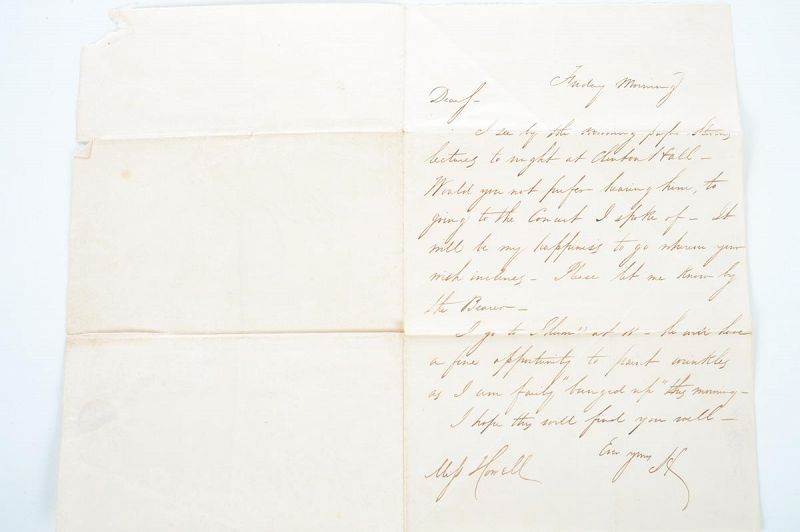 Friday Morning
Dear J-
I see by the morning paper
lectures to night at Clinton Hall -
Would you not prefer hearing him, to
going to the Concert I spoke of - It
will be my happiness to go where in your
wish inclines - Please let me know by
the Bearer -
I go to at - he will have
a fine opportunity to paint wrinkles
as I am fairly "bunged up" this morning -
I hope this will find you well -
Ever yours
Miss Howell